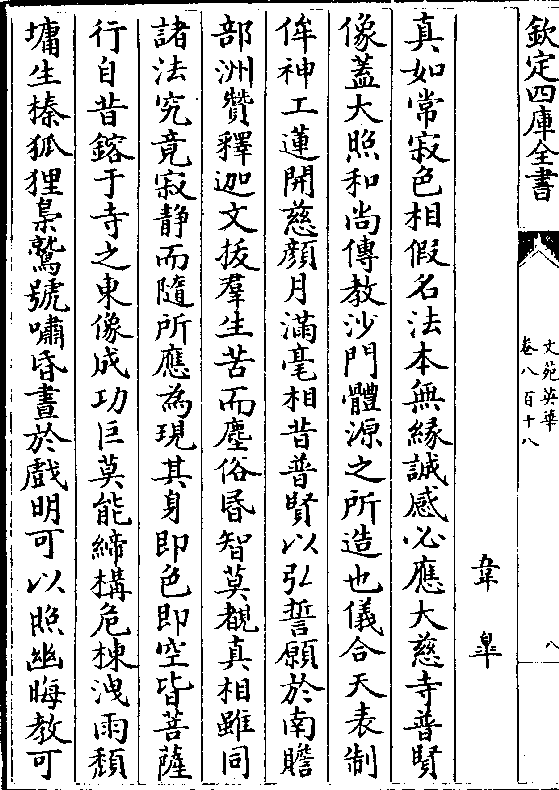 欽定四庫全書
文苑英華
卷八百十八
八
韋臯
真如常寂色相假名法本無緣誠感必應大慈寺普賢
像蓋大照和尚傳教沙門體源之所造也儀合天表制
侔神工蓮開慈顔月滿毫相昔普賢以弘誓願於南贍
部洲贊釋迦文拔羣生苦而塵俗昬智莫覩真相雖同
諸法究竟寂静而隨所應為現其身即色即空皆菩薩
行自昔鎔于寺之東像成功巨莫能締構危棟洩雨頽
墉生榛狐狸梟鷔號嘯昏晝於戲明可以照幽晦教可